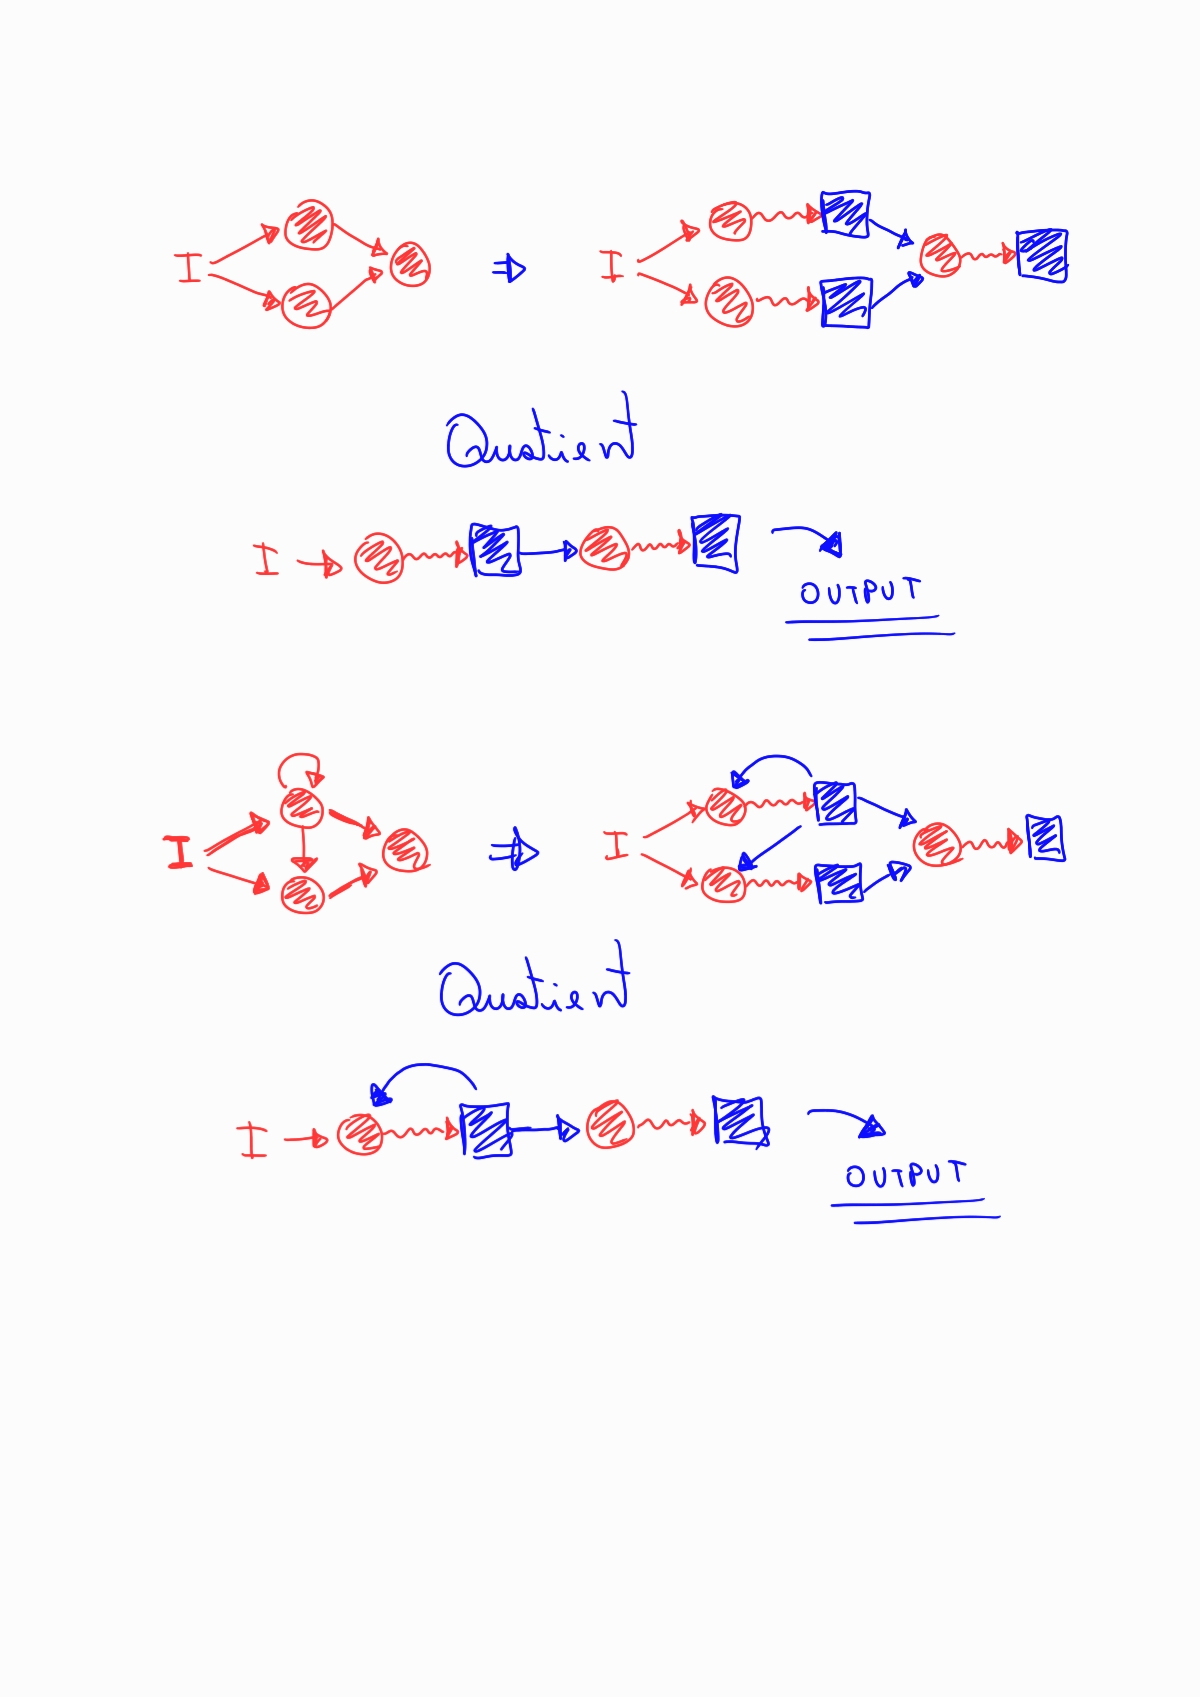 I ⇒ I
Quotient
I
OUTPUT
I ⇒ I
Quotient
I
OUTPUT